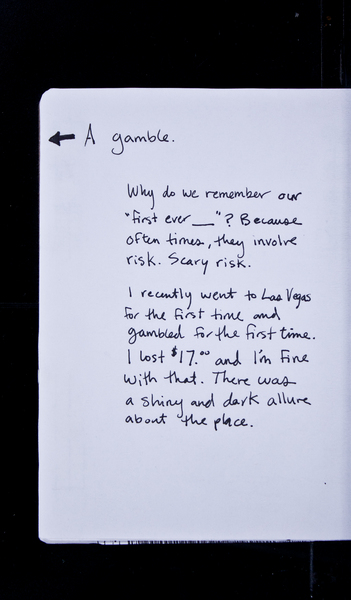 ← A gamble.
Why do we remember our
"first ever __"? Because
often times, they involve
risk. Scary risk.
I recently went to Las Vegas
for the first time and
gambled for the first time.
I lost $17.00 and I'm fine
with that. There was
a shiny and dark allure
about the place.